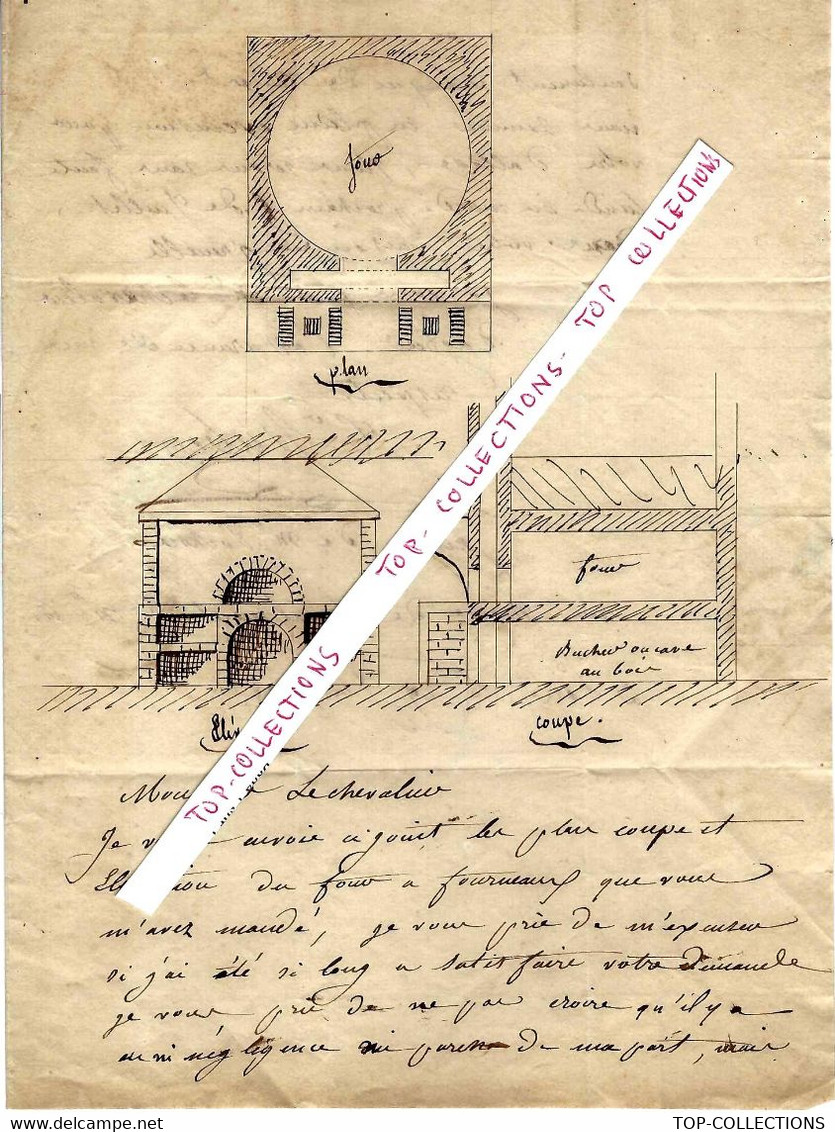 four
plan
TOP-COLLECTIONS TOP- COLLECTIONS- TOP COLLECTIONS
four
Bucher ou cave
au bois
coupe.
Lechevalier
Je envoie ci joint les plan coupe et
du four a fourneaux que vous
m'avez mandé, je vous prie de m'excuser
si j'ai été si long a satisfaire votre demande
je vous prie de ne pas croire qu'il y a
eu ni négligence ni de ma part, mais
TOP-COLLECTIONS